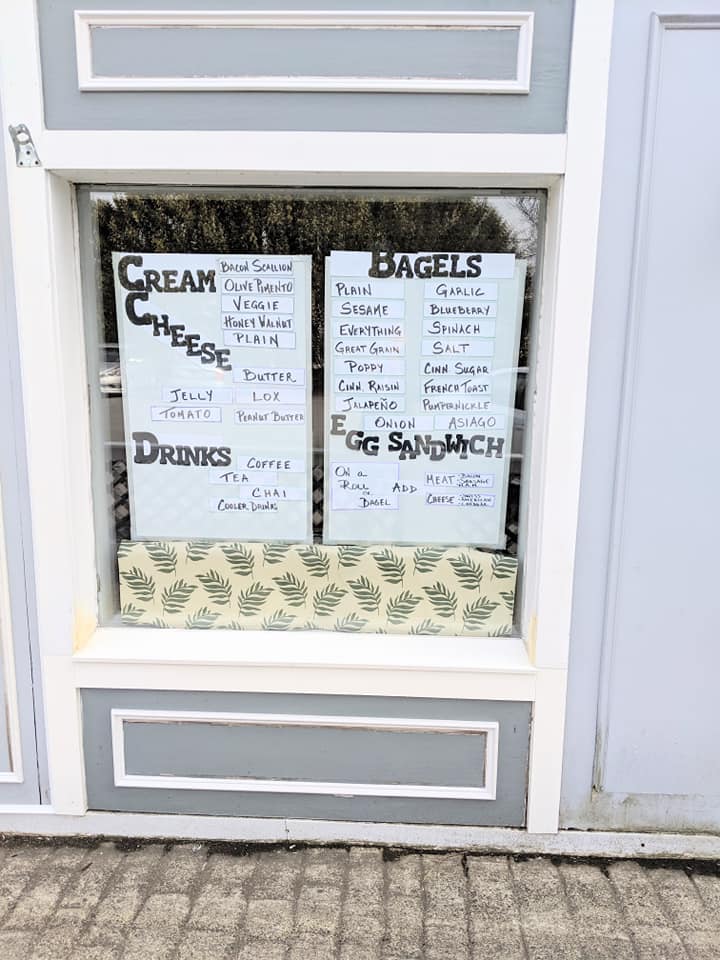 CREAM
CHEESE
BACON SCALLION
OLIVE PIMENTO
VEGGIE
HONEY WALNUT
PLAIN
BUTTER
JELLY LOX
TOMATO PEANUT BUTTER
DRINKS
COFFEE
TEA
CHAI
COOLER DRINKS
BAGELS
PLAIN GARLIC
SESAME BLUEBERRY
EVERYTHING SPINACH
GREAT GRAIN SALT
POPPY CINN SUGAR
CINN. RAISIN FRENCH TOAST
JALAPEÑO PUMPERNICKLE
ONION ASIAGO
EGG SANDWICH
ON a
ROLL
or
BAGEL
ADD
MEAT -BACON
-SAUSAGE
-HAM
CHEESE -SWISS
-AMERICAN
-CHEDDAR